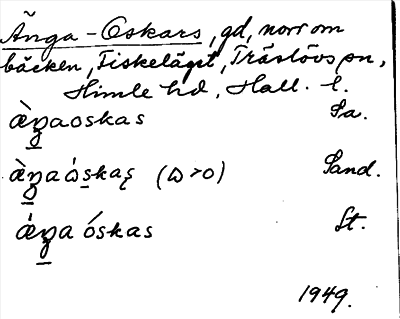 Änga-Oskars, gd, norr om
bäcken, Fiskeläget, Träslövs sn,
Himle hd, Hall. l.
æ̀ŋaoskas Sa.
æ̀ŋaὼskaș (ω>o) Sand.
ǽŋa óskas St.
1949.